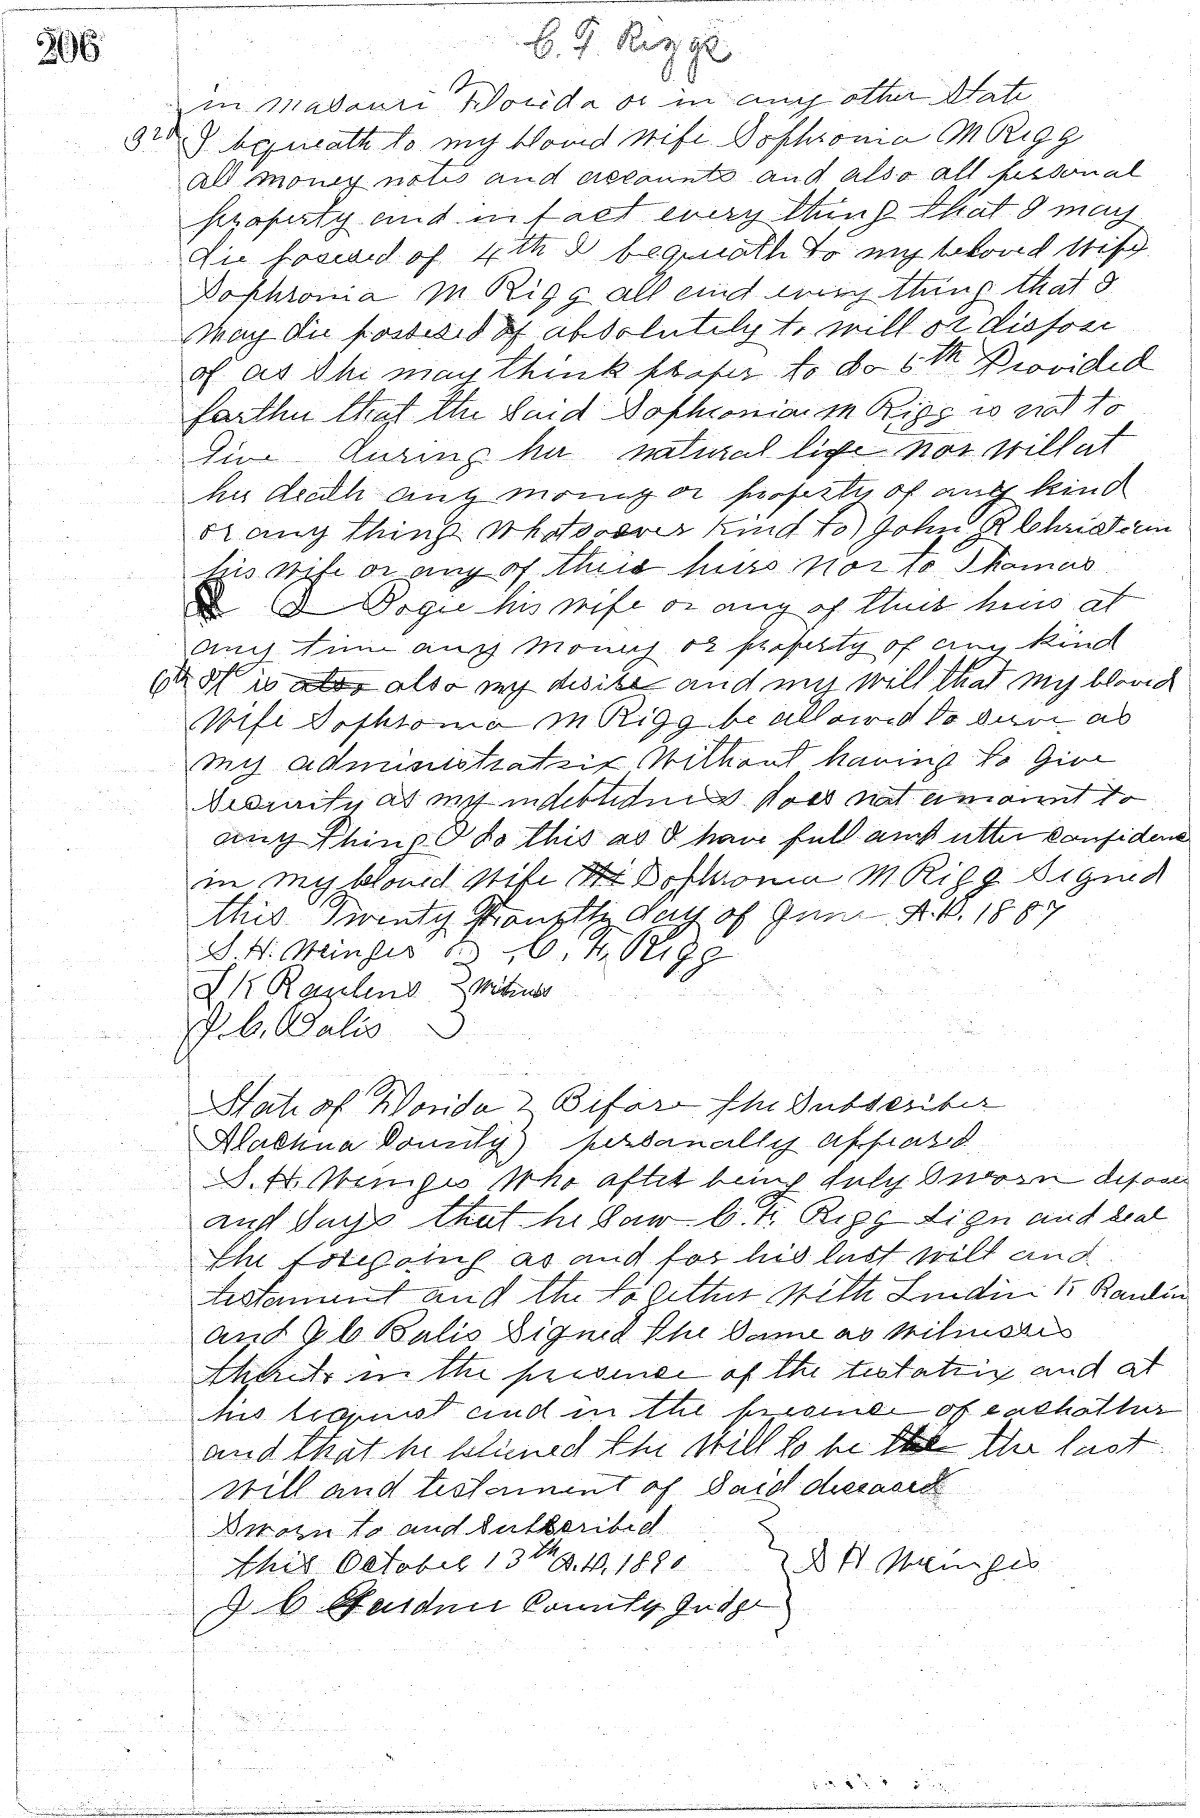 206
C. F. Rigg
in Masouri Florida or in any other State
3rd I bequeath to my bloved wife Sophronia M Rigg
all money notes and accounts and also all personal
property and in fact every thing that I may
die posessed of 4th I bequeath to my beloved wife
Sophronia M Rigg all and every thing that I
may die possesed of absolutely to will or dispose
of as she may think proper to do 5th Provided
farther that the Said Sophronia M Rigg is not to
Give during her natural life nor will at
her death any money or property of any kind
or any thing whatsoever kind to John R
his wife or any of their heirs nor to Thomas
Pogue his wife or any of their heirs at
any time any money or property of any kind
6th It is also also my desire and my will that my bloved
Wife Sophronia M Rigg be allowed to serve as
my administratrix Without having to Give
Security as my indebtedness does not amount to
any thing I do this as I have full and utter confidence
in my beloved wife Sophronia M Rigg Signed
this Twenty day of June A.D. 1887
S. H. C. F. Rigg
L K Witness
J. C.
State of Florida } Before the Subscriber
Alachua County } personally appeard
S. H. Who after being duly Sworn deposes
and Says that he Saw C. F. Rigg Sign and seal
the foregoing as and for his last will and
testament and the together with K
and J C Signed the Same as witnesses
thereto in the presence of the testatrix and at
his request and in the presence of eachother
and that he believed the Will to be the the last
will and testament of Said deceased
Sworn to and Subscribed
this October 13th A.D. 1890 } S H
J C County Judge